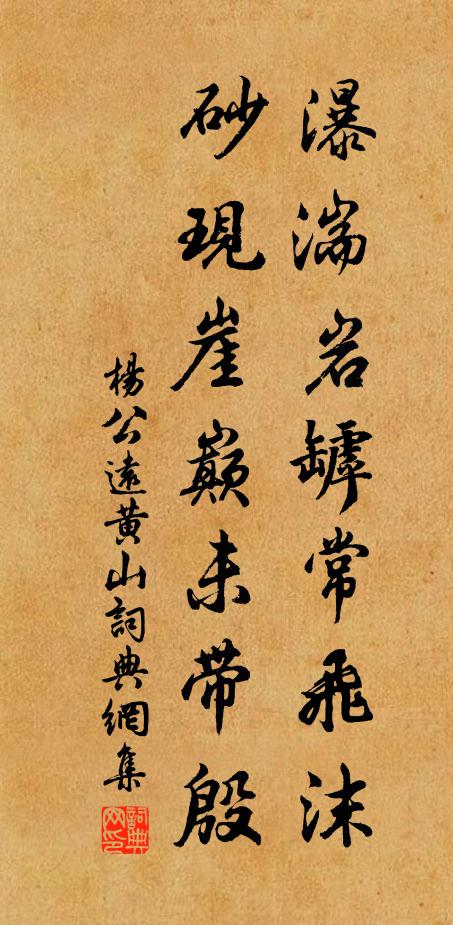 瀑湍岩罅常飛沫
砂現崖巔未帶殷
楊公遠黄山詞典網集
詞典網印